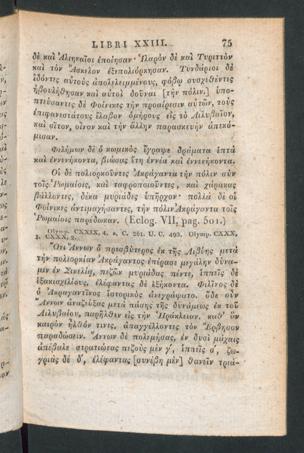 LIBRI XXIII. 75
δὲ καὶ Ἁλιηναῖοι ἐποίησαν· Ἱλαρὸν δὲ καὶ Τυριττὸν
καὶ τὸν Ἄσκελον ἐξεπολιόρκησαν. Τυνδάριοι δὲ
ἰδόντες αὑτοὺς ἀπολελειμμένους, φόβῳ συσχεθέντες
ἠβουλήθησαν καὶ αὐτοὶ δοῦναι [τὴν πόλιν.] ὑπο-
πτεύσαντες δὲ Φοίνικες τὴν προαίρεσιν αὐτῶν, τοὺς
ἐπιφανεστάτους ἔλαβον ὁμήρους εἰς τὸ Λιλυβαῖον,
καὶ σῖτον, οἶνον καὶ τὴν ἄλλην παρασκευὴν ἀπεκό-
μισαν.
Φιλήμων δὲ ὁ κωμικὸς ἔγραψε δράματα ἑπτὰ
καὶ ἐννενήκοντα, βιώσας ἔτη ἐννέα καὶ ἐννενήκοντα.
Οἱ δὲ πολιορκοῦντες Ἀκράγαντα τὴν πόλιν σὺν
τοῖς Ῥωμαίοις, καὶ ταφροποιοῦντες, καὶ χάρακας
βάλλοντες, δέκα μυριάδες ὑπῆρχον· πολλὰ δὲ οἱ
Φοίνικες ἀντιμαχήσαντες, τὴν πόλιν Ἀκράγαντα τοῖς
Ῥωμαίοις παρέδωκαν. (Eclog. VII, pag. 501.)
Olymp. CXXIX, 4. a. C. 261. U. C. 493. Olymp. CXXX,
Ὅτι Ἄννων ὁ πρεσβύτερος ἐκ τῆς Λιβύης μετὰ
τὴν πολιορκίαν Ἀκράγαντος ἐπέρασε μεγάλην δύνα-
μιν ἐν Σικελίᾳ, πεζῶν μυριάδας πέντε, ἱππεῖς δὲ
ἑξακισχιλίους, ἐλέφαντας δὲ ἑξήκοντα. Φιλῖνος δὲ
ὁ Ἀκραγαντῖνος ἱστορικὸς ἀνεγράψατο. ὅδε οὖν
Ἄννων ἀναζεύξας μετὰ πάσης τῆς δυνάμεως ἐκ τοῦ
Λιλυβαίου, παρῆλθεν εἰς τὴν Ἡράκλειαν, καθ᾽ ὃν
καιρὸν ἦλθόν τινες, ἀπαγγέλλοντες τὸν Ἔρβησον
παραδώσειν. Ἄννων δὲ πολεμήσας, ἐν δυσὶ μάχαις
ἀπέβαλε στρατιώτας πεζοὺς μὲν γ΄, ἱππεῖς σ΄, ζω-
γρίας δὲ δ΄, ἐλέφαντας [συνέβη μὲν] θανεῖν τριά-